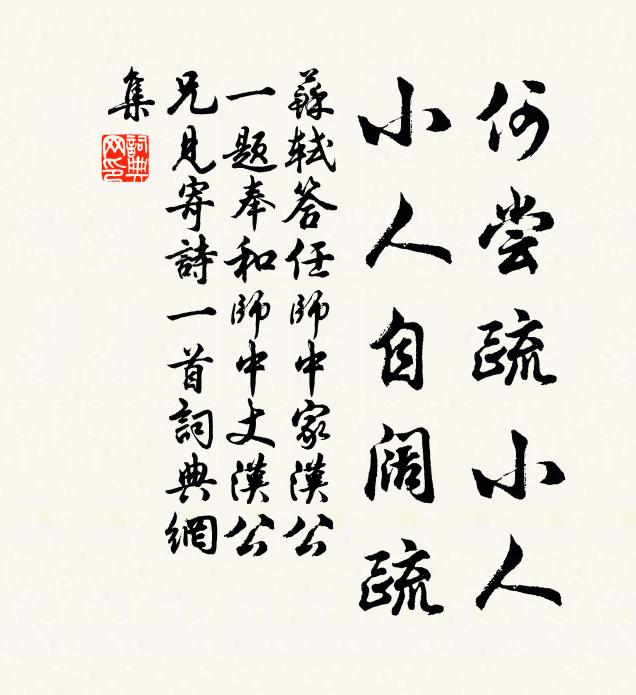 何尝疏小人
小人自阔疏
蘇軾答任師中家漢公
一題奉和師中丈漢公
兄見寄詩一首詞典網
集
詞典
网印